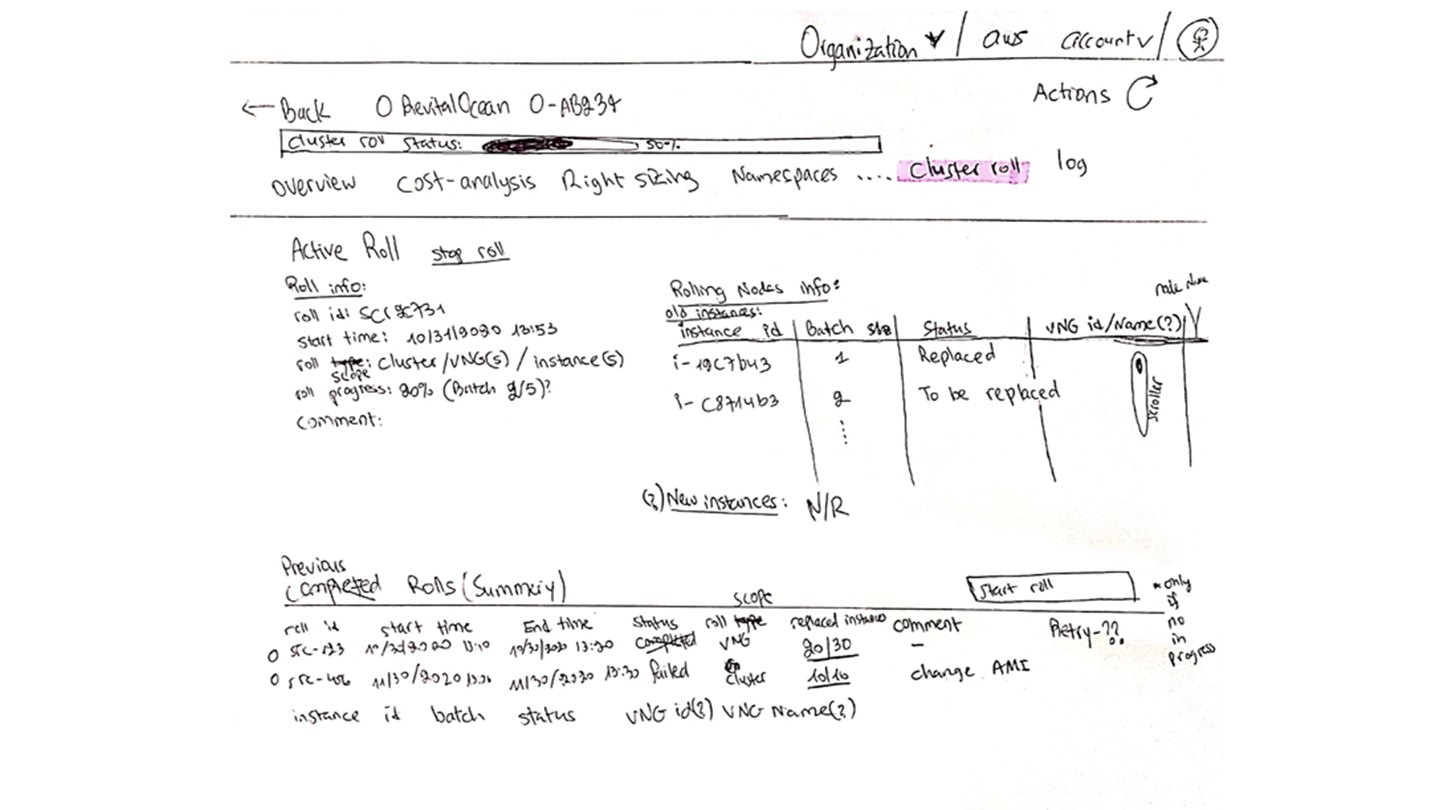 Organization / aws account /
Actions
← Back O RevitalOcean O-AB234
Cluster roll status: 50%
overview cost-analysis Right sizing Namespaces .... Cluster roll log
Active Roll stop roll
Roll info:
start time: 10/31/2020 13:53
roll type: Cluster/VNG(s) / instance(s)
scope
roll progress: 20% (Batch 2/5)?
comment:
Rolling Nodes info:
old instances:
instance id Batch Status VNG id/Name(?)
i-19c7b43 1 Replaced
i-c8714b3 2 To be replaced
scroller
(?) New instances: N/R
Previous
Completed Rolls (Summery)
Start roll
* only if no in progress
scope
roll id start time End time status roll type replaced instances comment Retry-??
completed VNG 20/30 -
failed cluster 10/10 change AMI
instance id batch status VNG id(?) VNG Name(?)